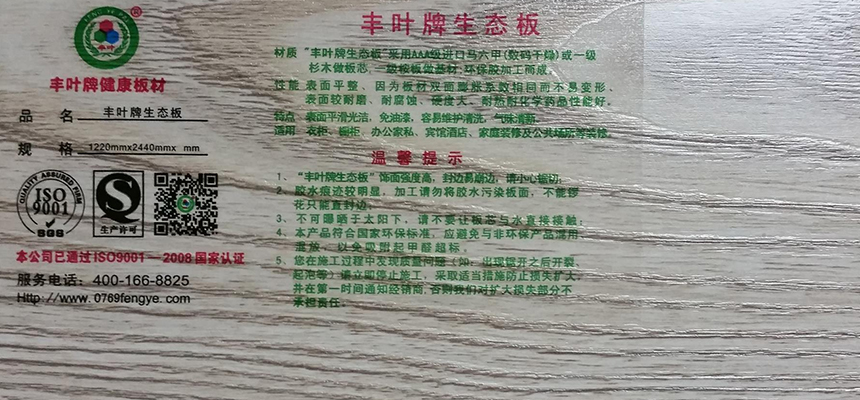 FENG YE PAI
®
丰叶
丰叶牌健康板材
品 名 丰叶牌生态板
规 格 1220mmx2440mmx mm
QUALITY ASSURED FIRM
ISO
9001
SGS
QS
生产许可
本公司已通过ISO9001—2008国家认证
服务电话: 400-166-8825
Http://www.0769fengye.com
丰叶牌生态板
材质 "丰叶牌生态板"采用AAA级进口马六甲(数码干燥)或一级
杉木做板芯,一级桉板做基材,环保胶加工而成。
性能 表面平整、因为板材双面膨胀系数相同而不易变形、
表面较耐磨、耐腐蚀、硬度大、耐热耐化学药品性能好。
特点 表面平滑光洁、免油漆、容易维护清洗、气味清新。
适用 衣柜、橱柜、办公家私、宾馆酒店、家庭装修及公共场所等装修。
温馨提示
1、"丰叶牌生态板"饰面强度高,封边易崩边,请小心锯切。
2、胶水痕迹较明显,加工请勿将胶水污染板面,不能锣
花只能直封边。
3、不可曝晒于太阳下,请不要让板芯与水直接接触;
4、本产品符合国家环保标准,应避免与非环保产品混用
混放,以免吸附起甲醛超标。
5、您在施工过程中发现质量问题(如:出现锯开之后开裂、
起泡等)请立即停止施工,采取适当措施防止损失扩大
并在第一时间通知经销商,否则我们对扩大损失部分不
承担责任.